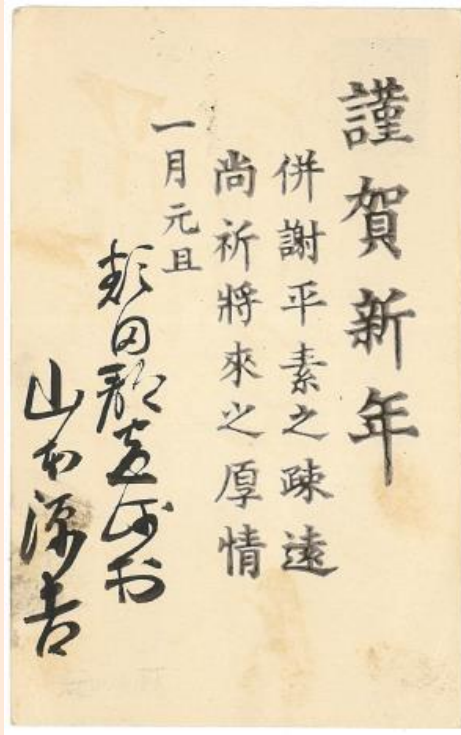 謹賀新年
併謝平素之疎遠
尚祈将來之厚情
一月元旦
額田郡
山本源吉